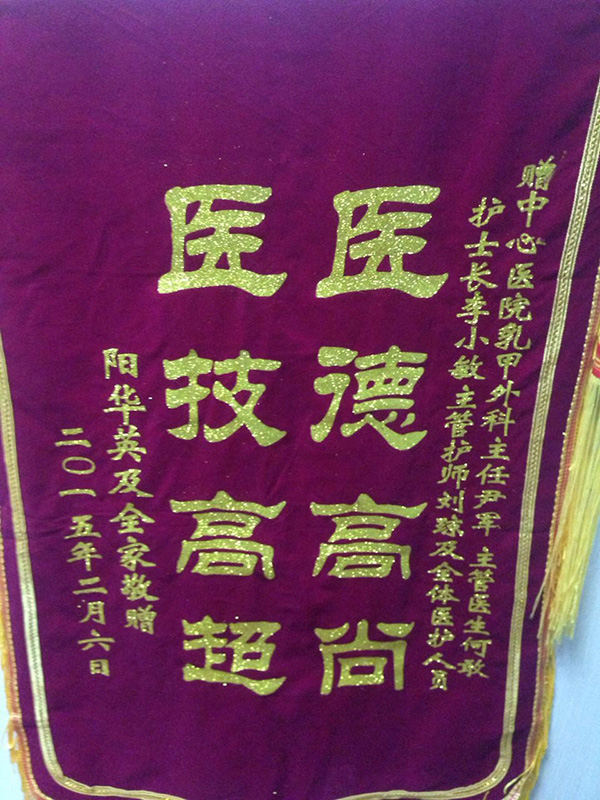 赠中心医院乳甲外科主任尹军 主管医生何敢
护士长李小敏主管护师刘琼及全体医护人员
医德高尚
医技高超
阳华英及全家敬赠
二〇一五年二月六日